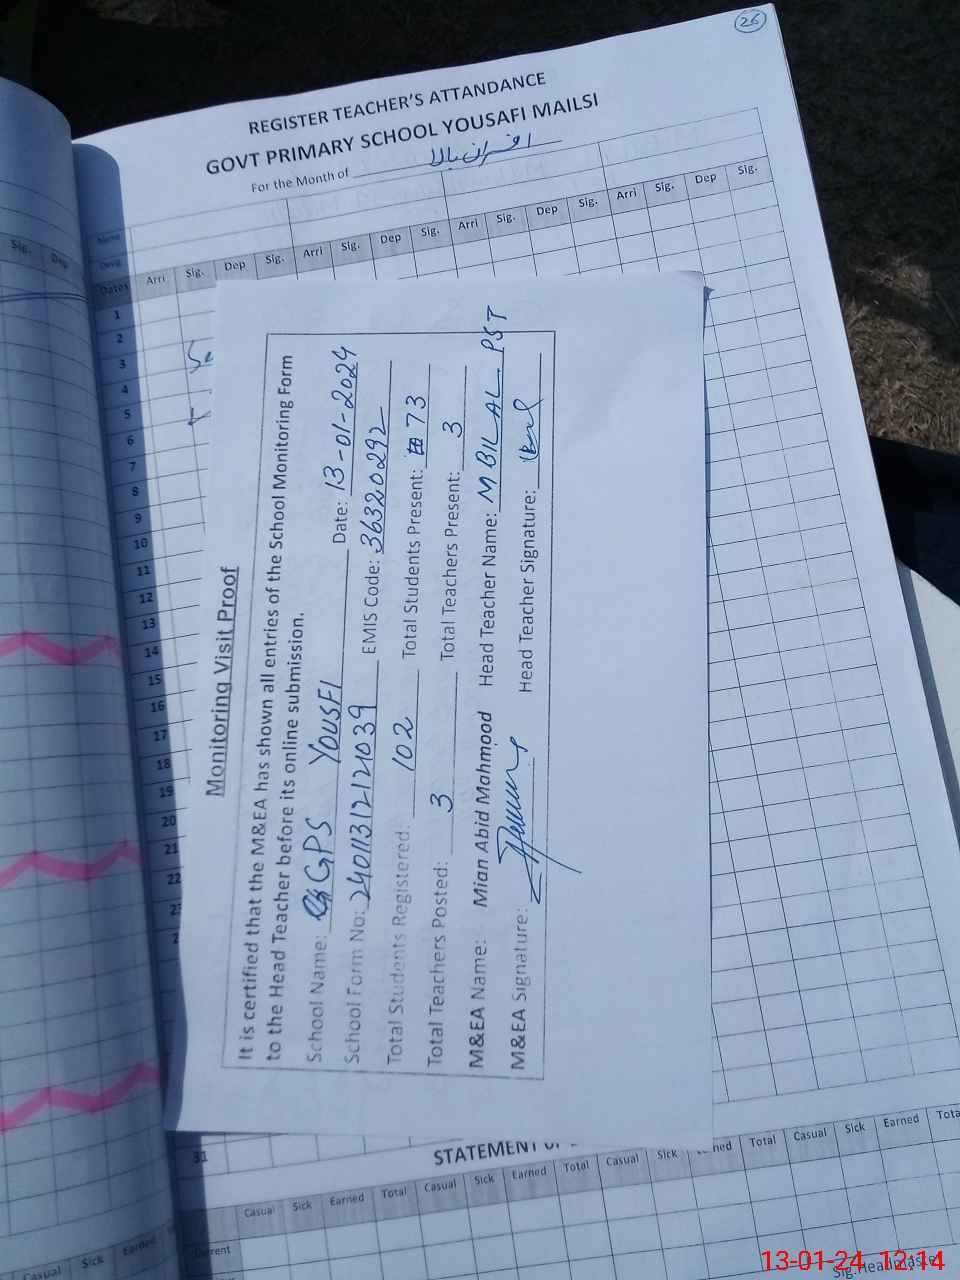 26
REGISTER TEACHER'S ATTANDANCE
GOVT PRIMARY SCHOOL YOUSAFI MAILSI
For the Month of
Name
Desig
Dates Arri Sig. Dep Sig. Arri Sig. Dep Sig. Arri Sig. Dep Sig. Arri Sig. Dep Sig.
Sig. Dep
1
2
3
4
5
6
7
8
9
10
11
12
13
14
15
16
17
18
19
20
21
22
31
Monitoring Visit Proof
It is certified that the M&EA has shown all entries of the School Monitoring Form
to the Head Teacher before its online submission.
School Name: GPS YOUSFI Date: 13-01-2024
School Form No: 24011312121039 EMIS Code: 36320292
Total Students Registered: 102 Total Students Present: 73
Total Teachers Posted: 3 Total Teachers Present: 3
M&EA Name: Mian Abid Mahmood Head Teacher Name: M BILAL PST
M&EA Signature: Head Teacher Signature:
STATEMENT
Casual Sick Earned Total Casual Sick Earned Total Casual Sick Total Casual Sick Earned
Current
Casual Sick Earned
Sig.Headmaste
13-01-24 12:14